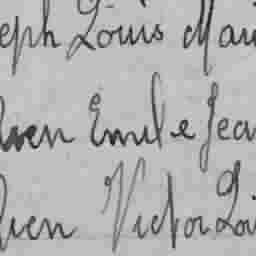 eph Louis Mari
en Emile Jea
en Victor Loui